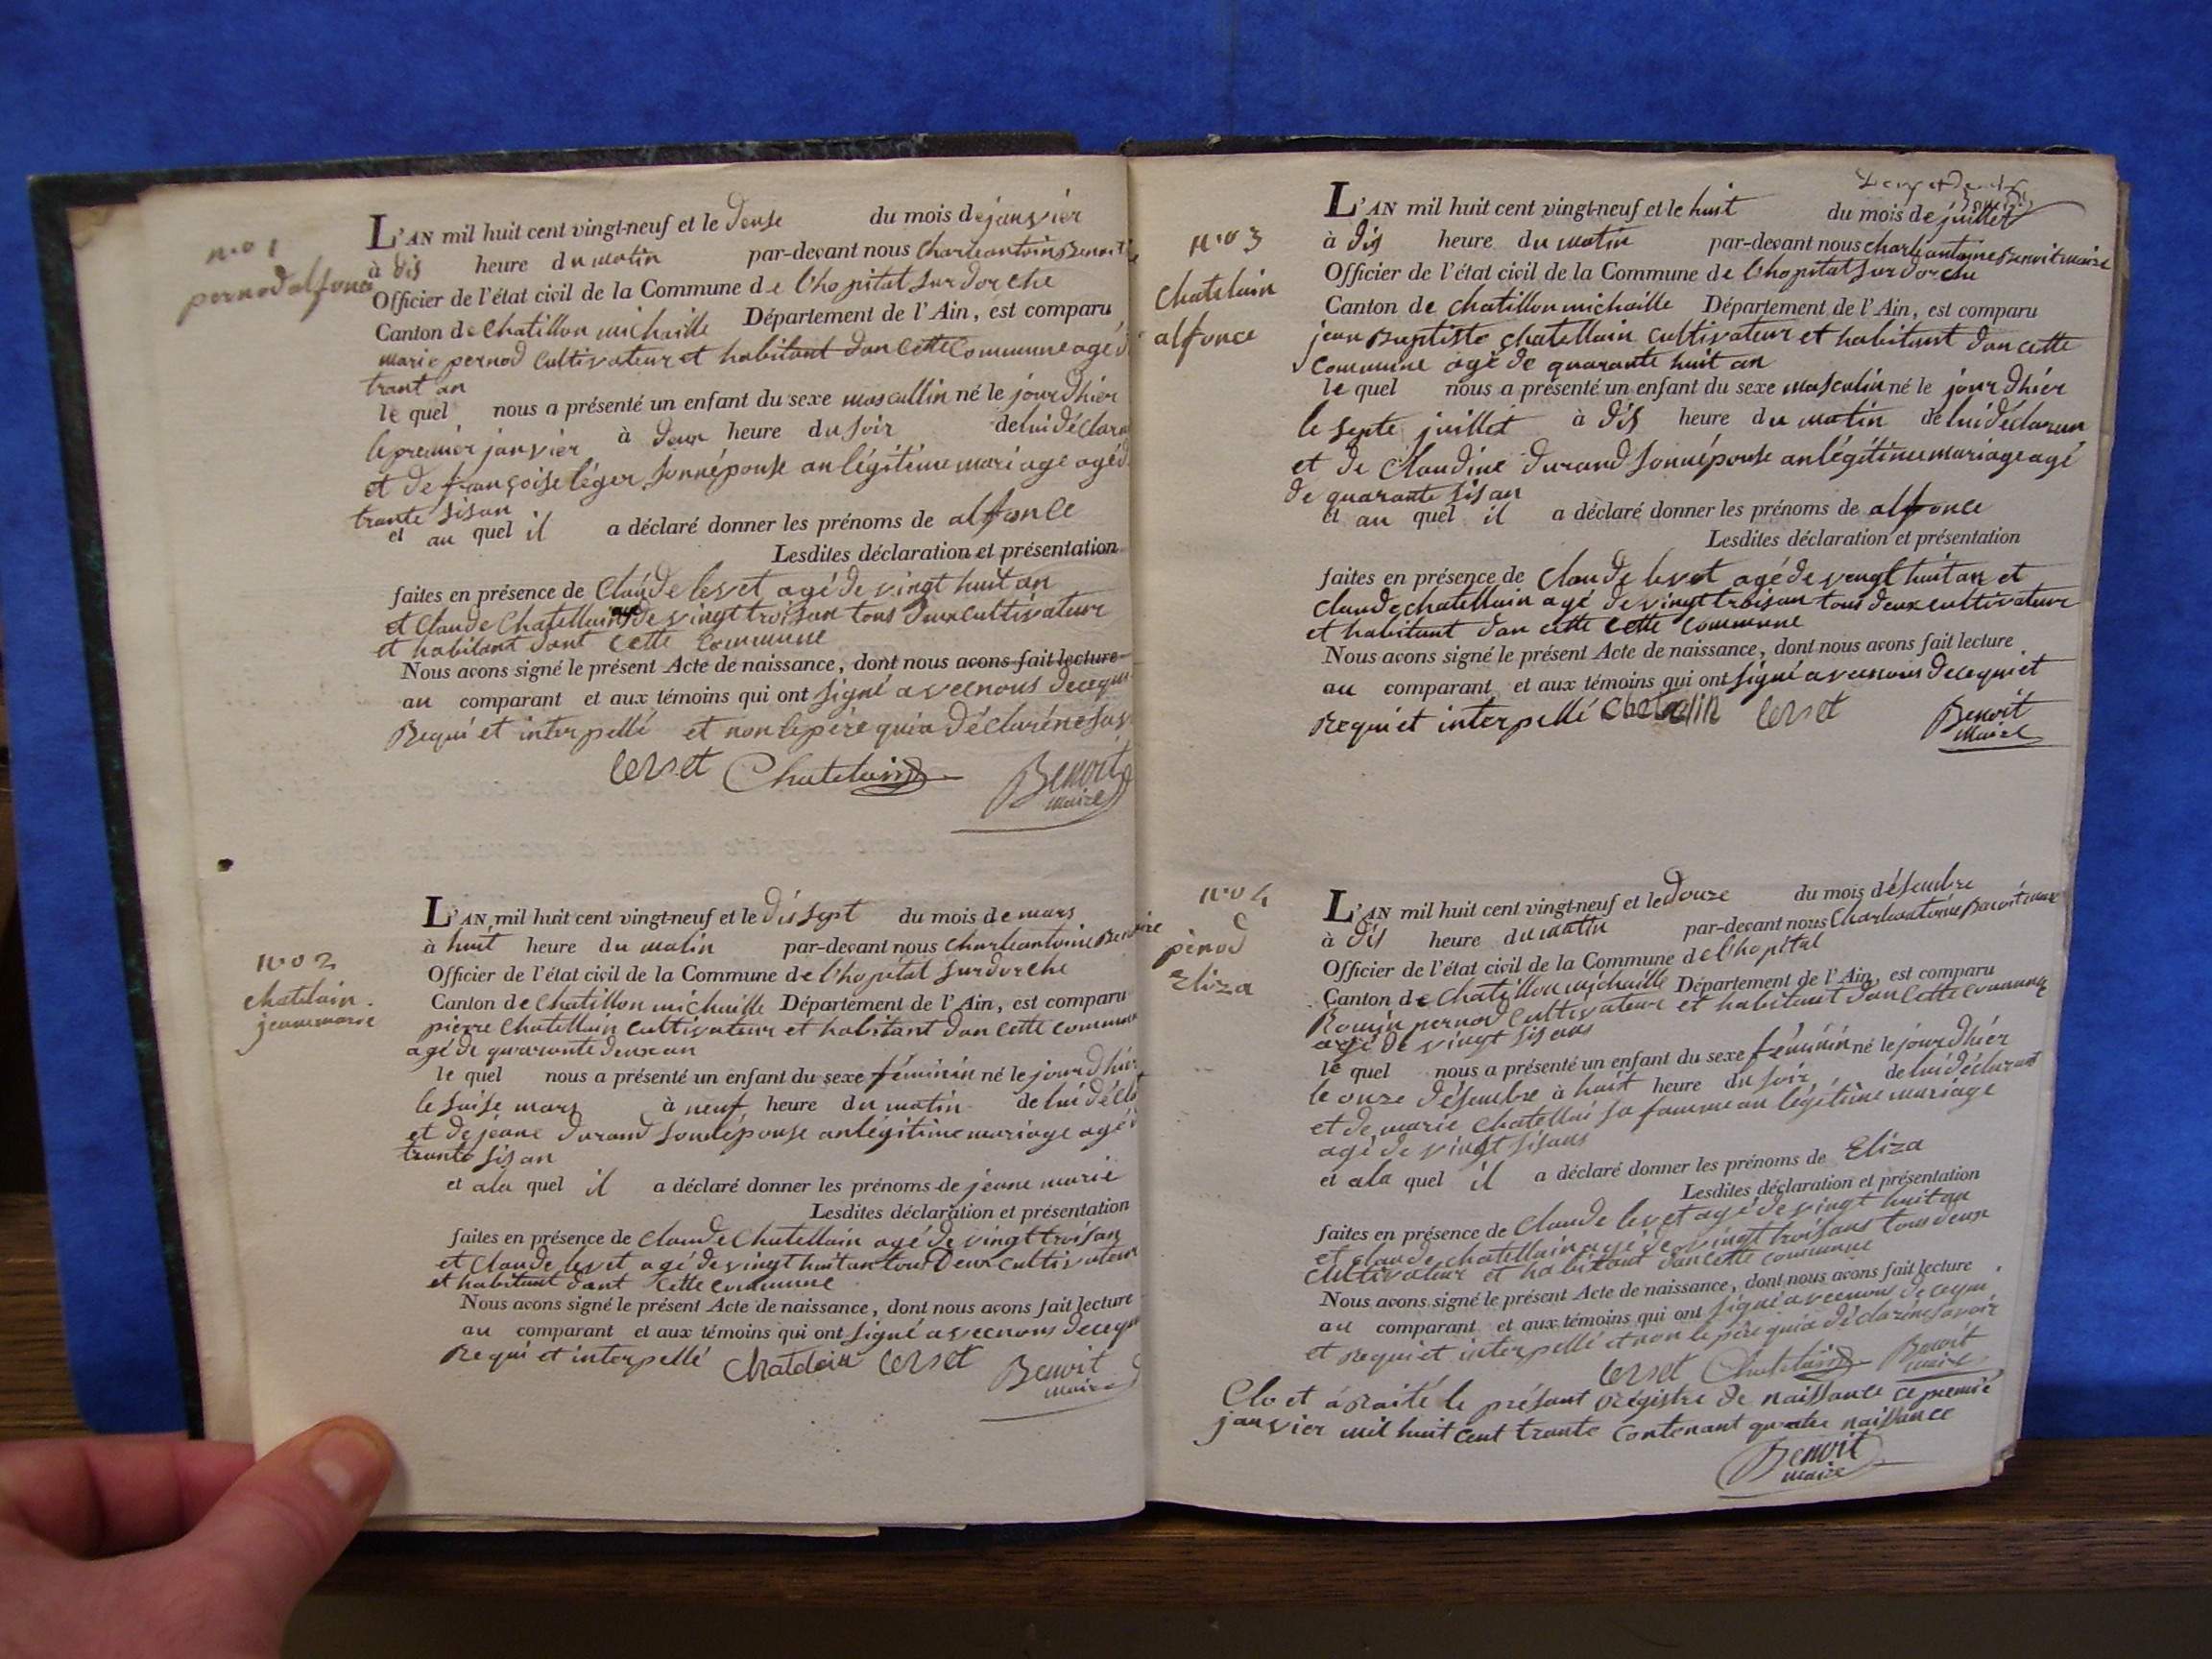 n.o 1
pernod alfonce
L'AN mil huit cent vingt-neuf et le deuse du mois de janvier
à dis heure du matin par-devant nous charle antoine Benoit
Officier de l'état civil de la Commune de l'hopital sur dorche
Canton de Chatillon michaille Département de l'Ain, est comparu
marie pernod cultivateur et habitant dan cette commune agé d
trant an
le quel nous a présenté un enfant du sexe mascullin né le jour d'hier
le premier janvier à deux heure du soir de lui déclara
et de françoise léger sonnépouse an légitime mariage agé d
trante sisan
et au quel il a déclaré donner les prénoms de alfonce
Lesdites déclaration et présentation
faites en présence de Claude levet agé de vingt huit an
et Claude Chatellain agé de vingt troisan tous deux cultivateur
et habitant dant cette commune
Nous avons signé le présent Acte de naissance, dont nous avons fait lecture
au comparant et aux témoins qui ont signé avec nous de ce qui
Requi et interpellé et non le père qui a déclaré ne sav
levet Chatelain Benoit
maire
no 2
chatelain
jeanemarie
L'AN mil huit cent vingt-neuf et le dis sept du mois de mars
à huit heure du matin par-devant nous charle antoine Benoi
Officier de l'état civil de la Commune de l'hopital sur dorche
Canton de Chatillon michaille Département de l'Ain, est comparu
pierre Chatellain cultivateur et habitant dan cette commun
agé de quarante deux an
le quel nous a présenté un enfant du sexe féminin né le jour d'hier
le saise mars à neuf heure du matin de lui décla
et de jeane durand sonnépouse an legitime mariage agé d
trante sis an
et a la quel il a déclaré donner les prénoms de jeane marie
Lesdites déclaration et présentation
faites en présence de Claude Chatellain agé de vingt troisan
et Claude levet agé de vingt huit an tous Deux cultivateur
et habitant dant cette commune
Nous avons signé le présent Acte de naissance, dont nous avons fait lecture
au comparant et aux témoins qui ont signé avec nous de ce qu
Requi et interpellé Chatelain levet Benoit
maire
no 3
Chatelain
alfonce
L'AN mil huit cent vingt-neuf et le huit du mois de juillet
à dis heure du matin par-devant nous charle antoine Benoit maire
Officier de l'état civil de la Commune de l'hopital sur dorche
Canton de chatillon michaille Département de l'Ain, est comparu
jean Baptiste chatellain cultivateur et habitant dan cette
commune agé de quarante huit an
le quel nous a présenté un enfant du sexe masculin né le jour d'hier
le septe juillet à dis heure du matin de lui déclaran
et de Claudine durand sonnépouse an légitime mariage agé
de quarante sisan
et au quel il a déclaré donner les prénoms de alfonce
Lesdites déclaration et présentation
faites en présence de Claude levet agé de vengt huit an et
Claude chatellain agé de vingt troisan tous deux cultivateur
et habitant dan cette cette commune
Nous avons signé le présent Acte de naissance, dont nous avons fait lecture
au comparant et aux témoins qui ont signé avec nous de ce qui et
Requi et interpellé Chatelin levet Benoit
Maire
no 4
pernod
Eliza
L'AN mil huit cent vingt-neuf et le douze du mois désembre
à dis heure du matin par-devant nous Charle antoine Benoit maire
Officier de l'état civil de la Commune de l'hopital
Canton de Chatillon michaille Département de l'Ain, est comparu
Romin pernod cultivateur et habitant dan cette commune
agé de vingt sis ans
le quel nous a présenté un enfant du sexe féminin né le jour d'hier
le onze désembre à huit heure du soir de lui déclarant
et de marie Chatellai sa famme an légitime mariage
agé de vingt sisans
et a la quel il a déclaré donner les prénoms de Eliza
Lesdites déclaration et présentation
faites en présence de Claude levet agé de vingt huit an
et claude chatellain agé de vingt troisans tous deux
cultivateur et habitant dan cette commune
Nous avons signé le présent Acte de naissance, dont nous avons fait lecture
au comparant et aux témoins qui ont signé avec nous de ce qui
et Requi et interpellé et non le père qui a déclaré ne savoir
levet Chatelain Benoit
maire
Clo et áraité le présant Régistre de naissance ce premié
janvier mil huit cent trante contenant quatre naissance
Benoit
maire